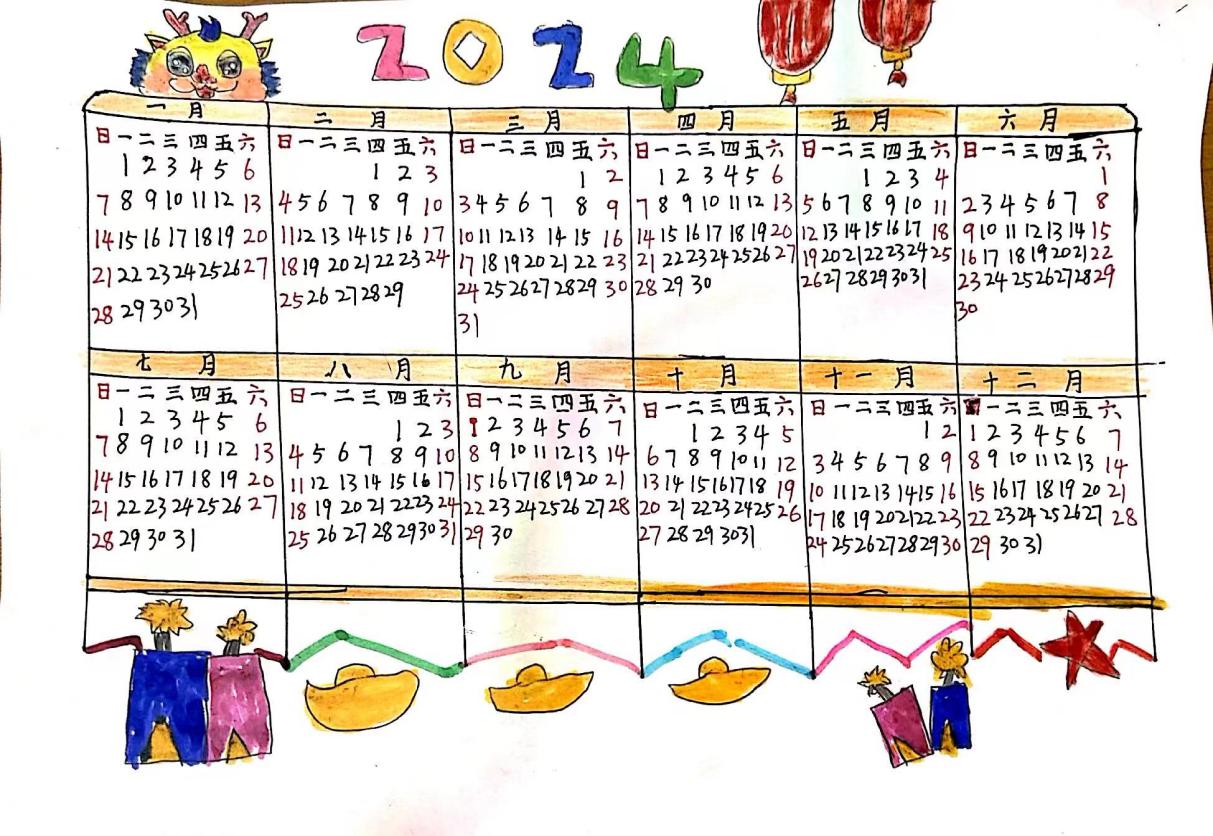 2024
一月
日 一 二 三 四 五 六
1 2 3 4 5 6
7 8 9 10 11 12 13
14 15 16 17 18 19 20
21 22 23 24 25 26 27
28 29 30 31
二月
日 一 二 三 四 五 六
1 2 3
4 5 6 7 8 9 10
11 12 13 14 15 16 17
18 19 20 21 22 23 24
25 26 27 28 29
三月
日 一 二 三 四 五 六
1 2
3 4 5 6 7 8 9
10 11 12 13 14 15 16
17 18 19 20 21 22 23
24 25 26 27 28 29 30
31
四月
日 一 二 三 四 五 六
1 2 3 4 5 6
7 8 9 10 11 12 13
14 15 16 17 18 19 20
21 22 23 24 25 26 27
28 29 30
五月
日 一 二 三 四 五 六
1 2 3 4
5 6 7 8 9 10 11
12 13 14 15 16 17 18
19 20 21 22 23 24 25
26 27 28 29 30 31
六月
日 一 二 三 四 五 六
1
2 3 4 5 6 7 8
9 10 11 12 13 14 15
16 17 18 19 20 21 22
23 24 25 26 27 28 29
30
七月
日 一 二 三 四 五 六
1 2 3 4 5 6
7 8 9 10 11 12 13
14 15 16 17 18 19 20
21 22 23 24 25 26 27
28 29 30 31
八月
日 一 二 三 四 五 六
1 2 3
4 5 6 7 8 9 10
11 12 13 14 15 16 17
18 19 20 21 22 23 24
25 26 27 28 29 30 31
九月
日 一 二 三 四 五 六
1 2 3 4 5 6 7
8 9 10 11 12 13 14
15 16 17 18 19 20 21
22 23 24 25 26 27 28
29 30
十月
日 一 二 三 四 五 六
1 2 3 4 5
6 7 8 9 10 11 12
13 14 15 16 17 18 19
20 21 22 23 24 25 26
27 28 29 30 31
十一月
日 一 二 三 四 五 六
1 2
3 4 5 6 7 8 9
10 11 12 13 14 15 16
17 18 19 20 21 22 23
24 25 26 27 28 29 30
十二月
日 一 二 三 四 五 六
1 2 3 4 5 6 7
8 9 10 11 12 13 14
15 16 17 18 19 20 21
22 23 24 25 26 27 28
29 30 31